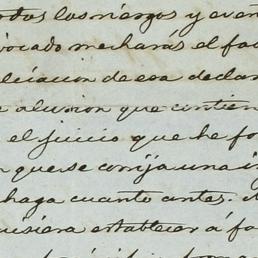 todos los riesgos y even
vocado me harás el fa
liciación de esa declar
e alusion que contien
el juicio que he fo
n que se corrija una i
haga cuanto antes.
uisiera establecer á fa